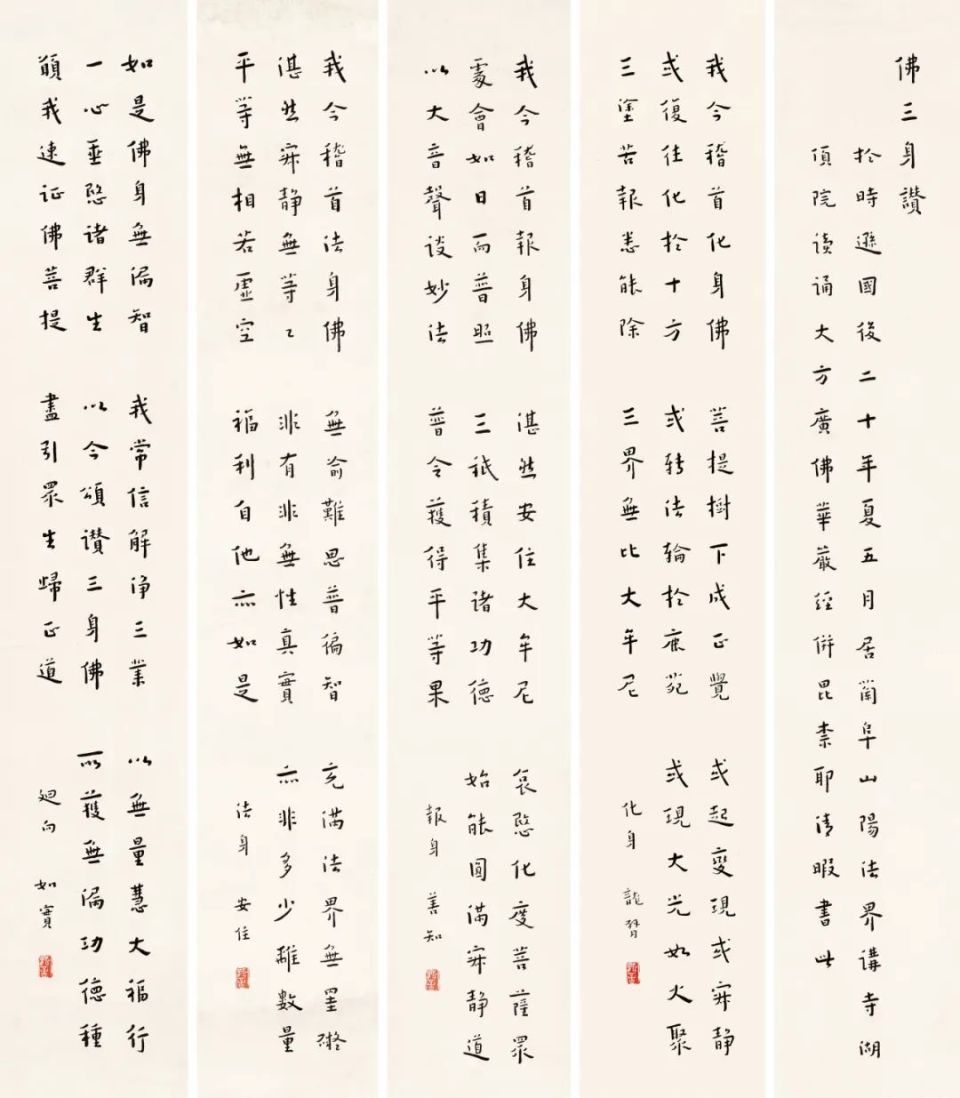 佛三身讚
於時遜國後二十年夏五月居蘭阜山陽法界講寺湖
傎院读誦大方廣佛華嚴經併毘柰耶清暇書此
我今稽首化身佛 菩提樹下成正覺 或起变現或寂静
或復往化於十方 或转法輪於鹿苑 或現大光如火聚
三塗苦報悉能除 三界無比大牟尼
化身 龍臂
我今稽首報身佛 湛然安住大牟尼 哀愍化度菩薩眾
處會如日而普照 三祇積集諸功德 始能圓滿寂静道
以大音聲談妙法 普令獲得平等果
報身 善知
我今稽首法身佛 無喻難思普徧智 充滿法界無罣礙
湛然寂静無等々 非有非無性真實 亦非多少離數量
平等無相若虛空 福利自他亦如是
法身 安住
如是佛身無漏智 我常信解浄三業 以無量慧大福行
一心垂愍诸群生 以今頌讚三身佛 所獲無漏功德種
願我速证佛菩提 盡引眾生歸正道
廻向 如實